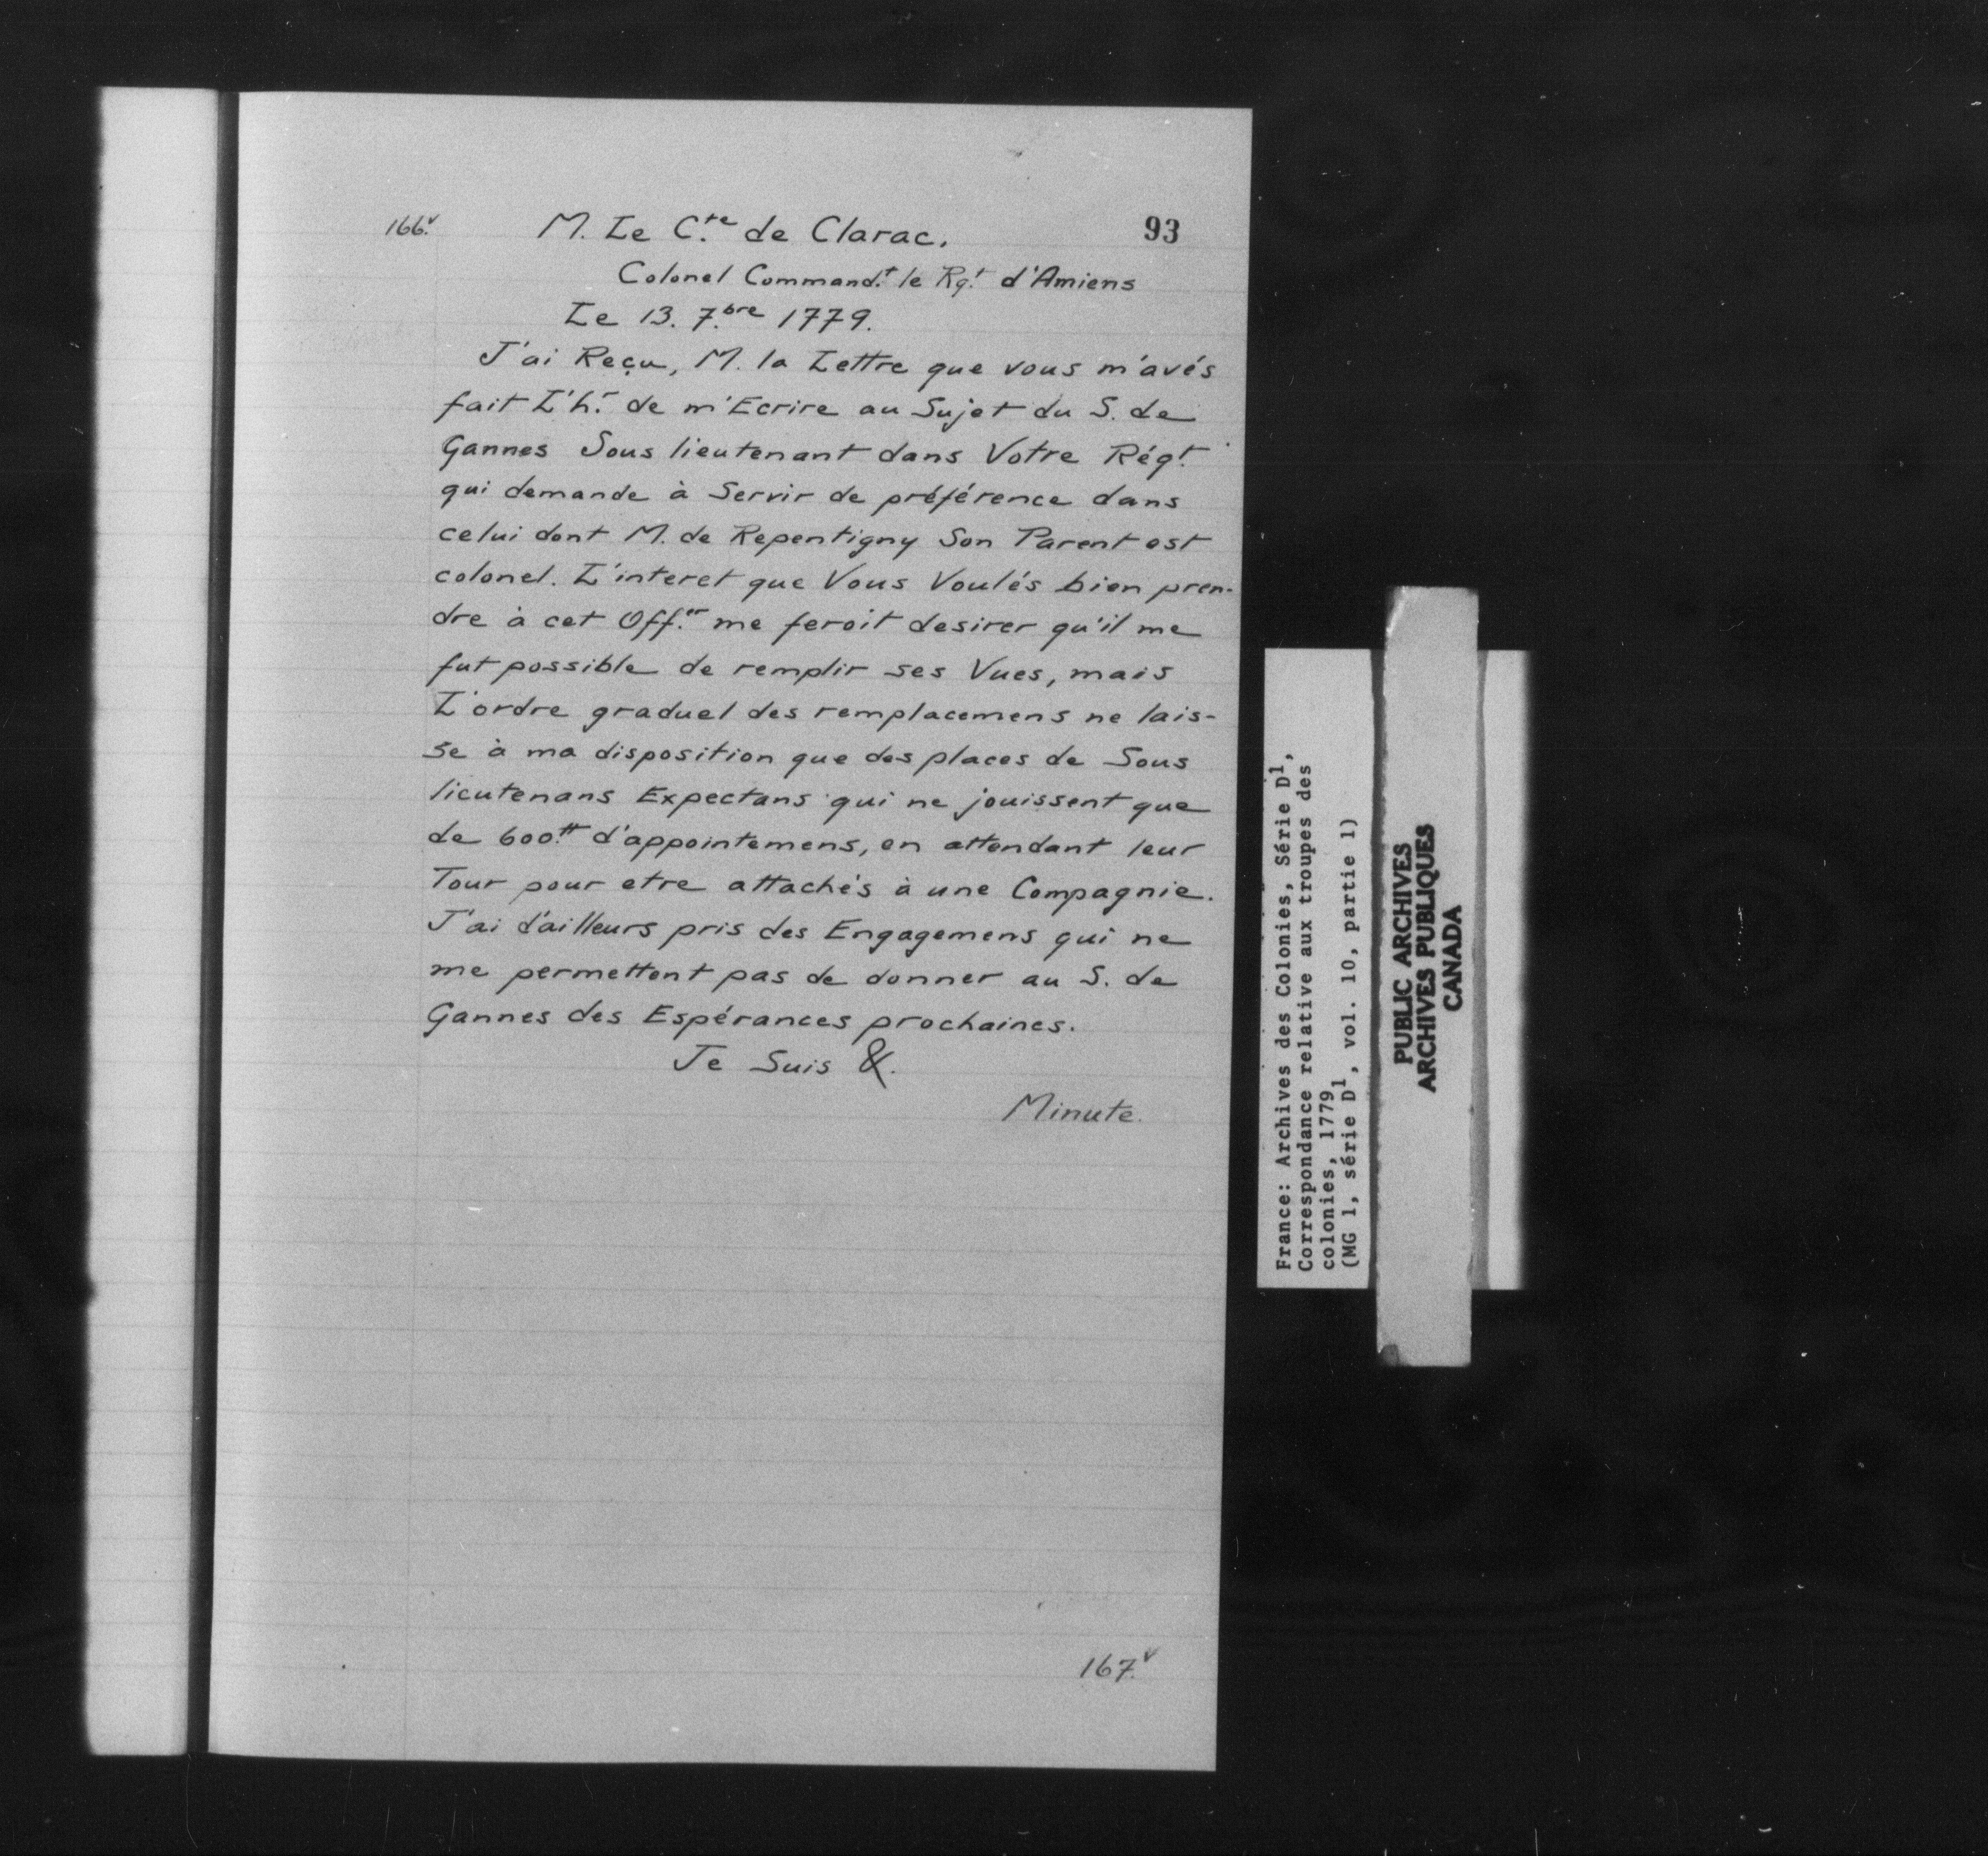 166.v M. Le C.te de Clarac. 93
Colonel Command.t le Rg.t d'Amiens
Le 13. 7.bre 1779.
J'ai Reçu, M. la Lettre que vous m'avés
fait L'h.r de m'Ecrire au Sujet du S. de
Gannes Sous lieutenant dans Votre Rég.t
qui demande à Servir de préférence dans
celui dont M. de Repentigny Son Parent est
colonel. L'interet que Vous Voulés bien pren-
dre à cet Off.er me feroit desirer qu'il me
fut possible de remplir ses Vues, mais
L'ordre graduel des remplacemens ne lais-
se à ma disposition que des places de Sous
lieutenans Expectans qui ne jouissent que
de 600.tt d'appointemens, en attendant leur
Tour pour etre attachés à une Compagnie.
J'ai d'ailleurs pris des Engagemens qui ne
me permettent pas de donner au S. de
Gannes des Espérances prochaines.
Je Suis &.
Minute.
167.v
France: Archives des Colonies, Série D1,
Correspondance relative aux troupes des
colonies, 1779
(MG 1, série D1, vol. 10, partie 1)
PUBLIC ARCHIVES
ARCHIVES PUBLIQUES
CANADA